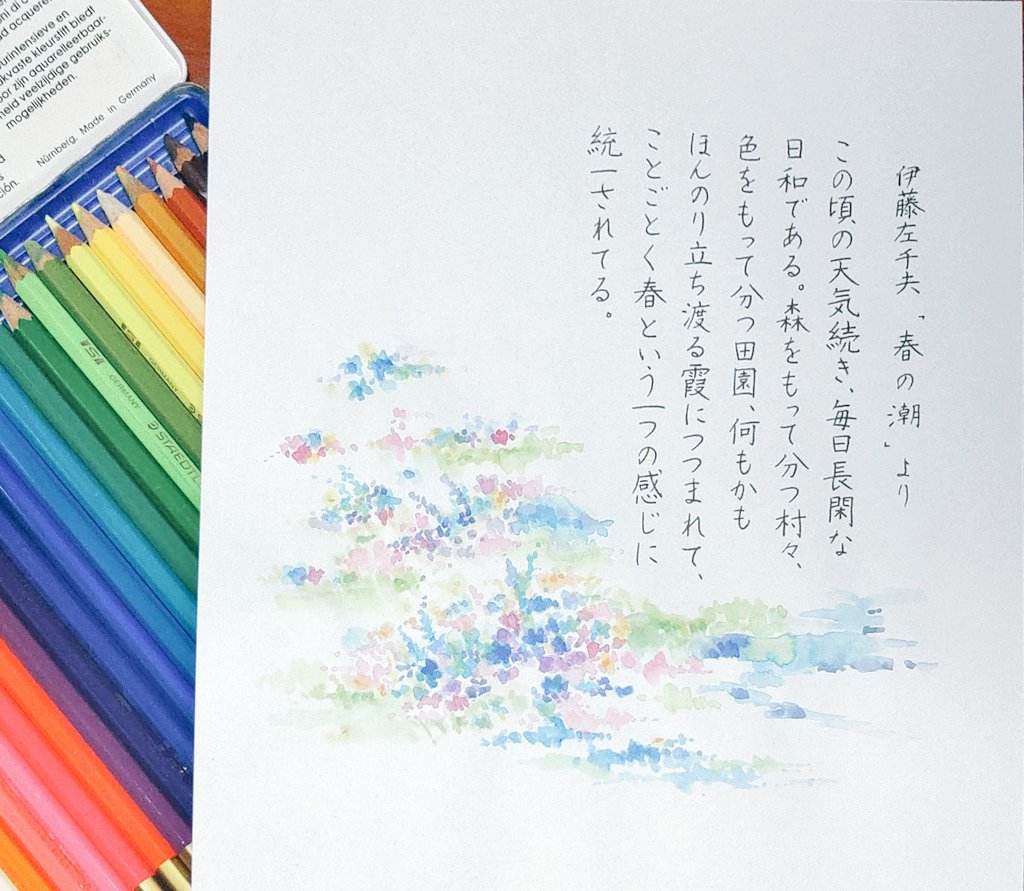 伊藤左千夫「春の潮」より
この頃の天気続き、毎日長閑な
日和である。森をもって分つ村々、
色をもって分つ田園、何もかも
ほんのり立ち渡る霞につつまれて、
ことごとく春という一つの感じに
統一されてる。
urintensieve en
akvaste kleurstift biedt
oor zijn aquarelleerbaar-
heid veelzijdige gebruiks-
mogelijkheden.
Nürnberg. Made in Germany
ción.
GERMANY
STAEDTL